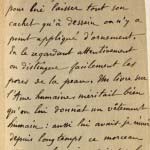 pour lui laisser tout son
cachet qu'à dessein on n'y a
point appliqué d'ornement.
En le regardant attentivement
on distingue facilement les
pores de la peau. Un livre sur
l'Ame humaine méritait bien
qu'on lui donnât un vêtement
humain: aussi lui avais je réservé
depuis longtemps ce morceau